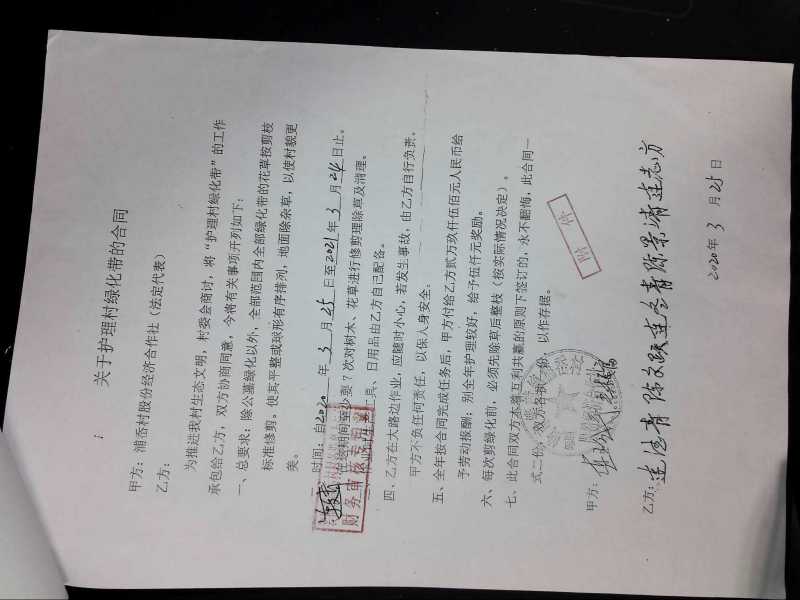 关于护理村绿化带的合同
甲方：浦岙村股份经济合作社（法定代表）
乙方：
为推进我村生态文明，村委会商讨，将“护理村绿化带”的工作
承包给乙方，双方协商同意，今将有关事项开列如下：
一、总要求：除公墓绿化以外，全部范围内全部绿化带的花草按剪枝
标准修剪。使其平整或球形有序排列，地面除杂草，以使村貌更
美。
二、时间：自2020年3月25日至2021年3月24日止。
在该期间至少要7次对树木、花草进行修剪理除草及清理。
工具、日用品由乙方自己配备。
四、乙方在大路边作业，应随时小心，若发生事故，由乙方自行负责。
甲方不负任何责任，以保人身安全。
五、全年按合同完成任务后，甲方付给乙方贰万玖仟伍佰元人民币给
予劳动报酬；别全年护理较好，给予伍仟元奖励。
六、每次剪绿化前，必须先除草后整枝（按实际情况决定）。
七、此合同双方本着互利共赢的原则下签订的，永不翻悔，此合同一
式二份，双方各执一份，以作存据。
财务审核专用章
附件
甲方：
乙方：
2020年3月25日